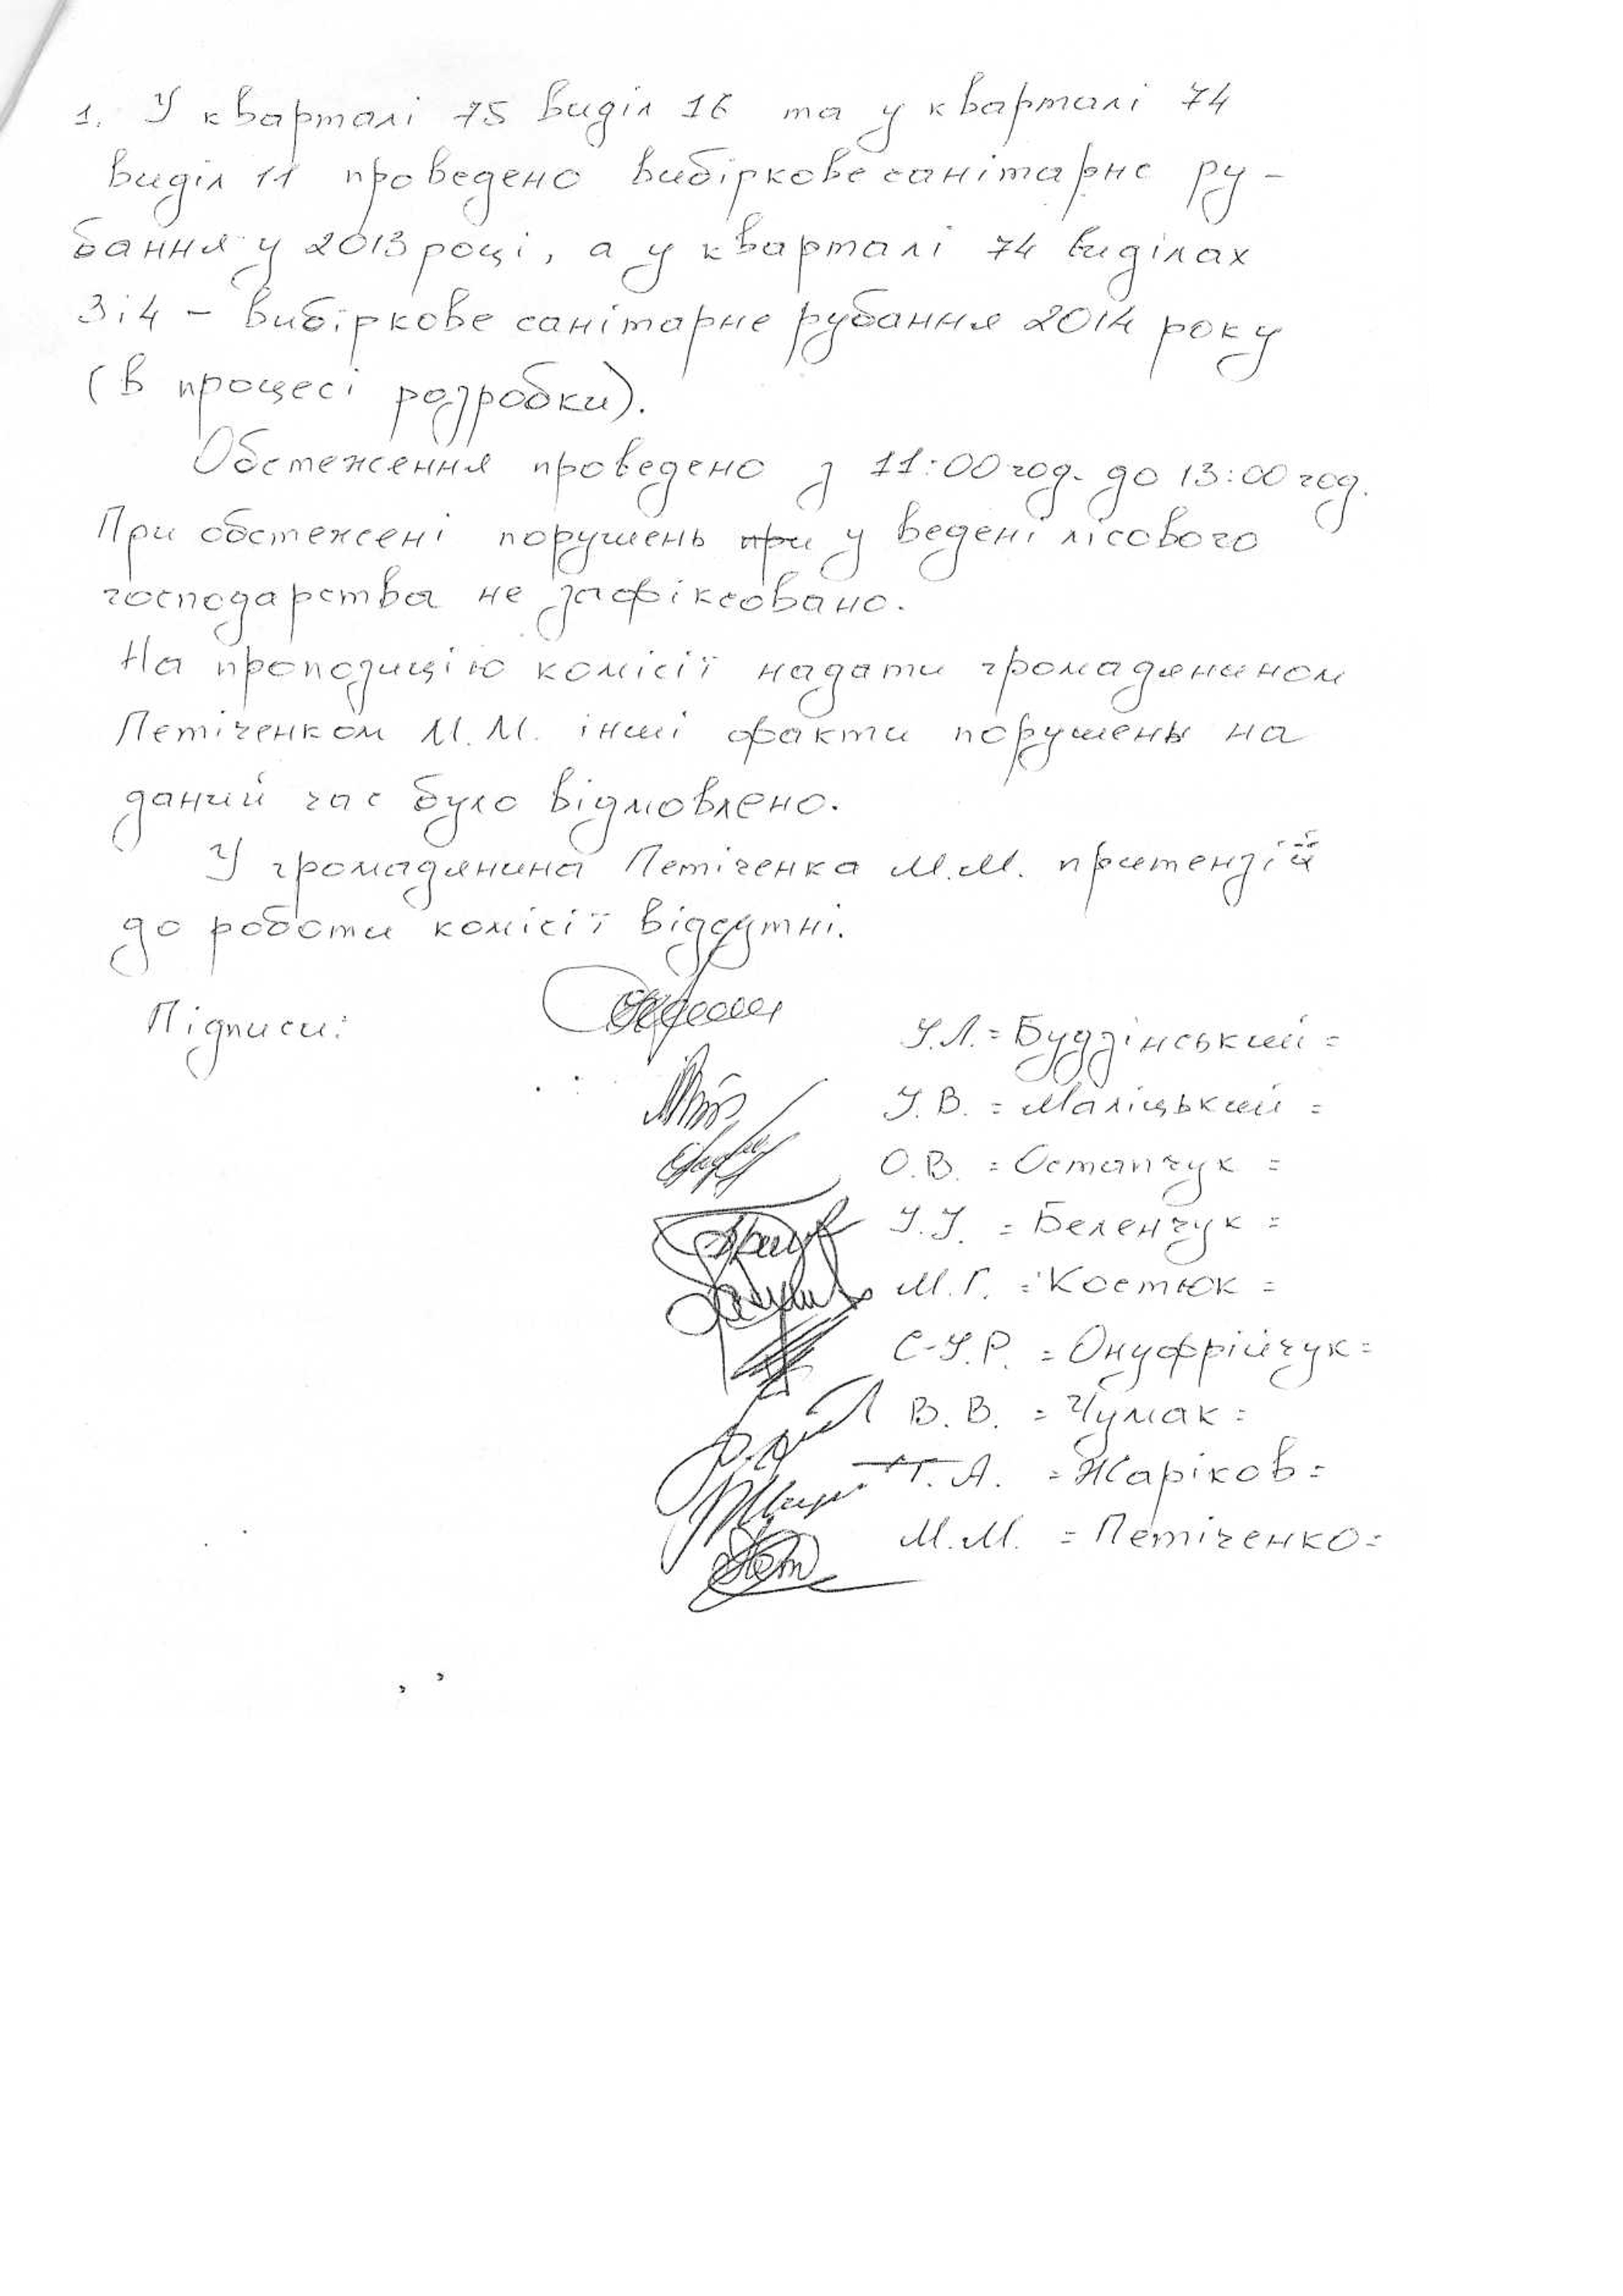 1. У кварталі 75 виділ 16 та у кварталі 74
виділ 11 проведено вибіркове санітарне ру-
бання у 2013 році, а у кварталі 74 виділах
3 і 4 - вибіркове санітарне рубання 2014 року
(в процесі розробки).
Обстеження проведено з 11:00 год. до 13:00 год.
При обстежені порушень при у ведені лісового
господарства не зафіксовано.
На пропозицію комісії надати громадянином
Петіченком М.М. інші факти порушень на
даний час було відмовлено.
У громадянина Петіченка М.М. притензій
до роботи комісії відсутні.
Підписи:
І.Л. = Будзінський =
І.В. = Маліцький =
О.В. = Остапчук =
І.І. = Беленчук =
М.Г. = Костюк =
С-І.Р. = Онуфрійчук =
В.В. = Чумак =
Г.А. = Жаріков =
М.М. = Петіченко =